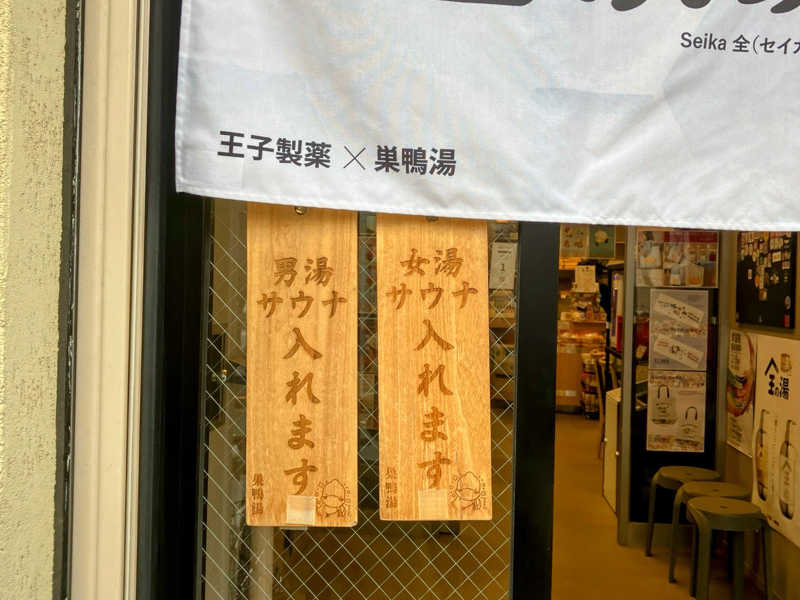 Seika 全(セイカ
王子製薬 × 巣鴨湯
男湯
サウナ
入れます
巣鴨湯
女湯
サウナ
入れます
巣鴨湯